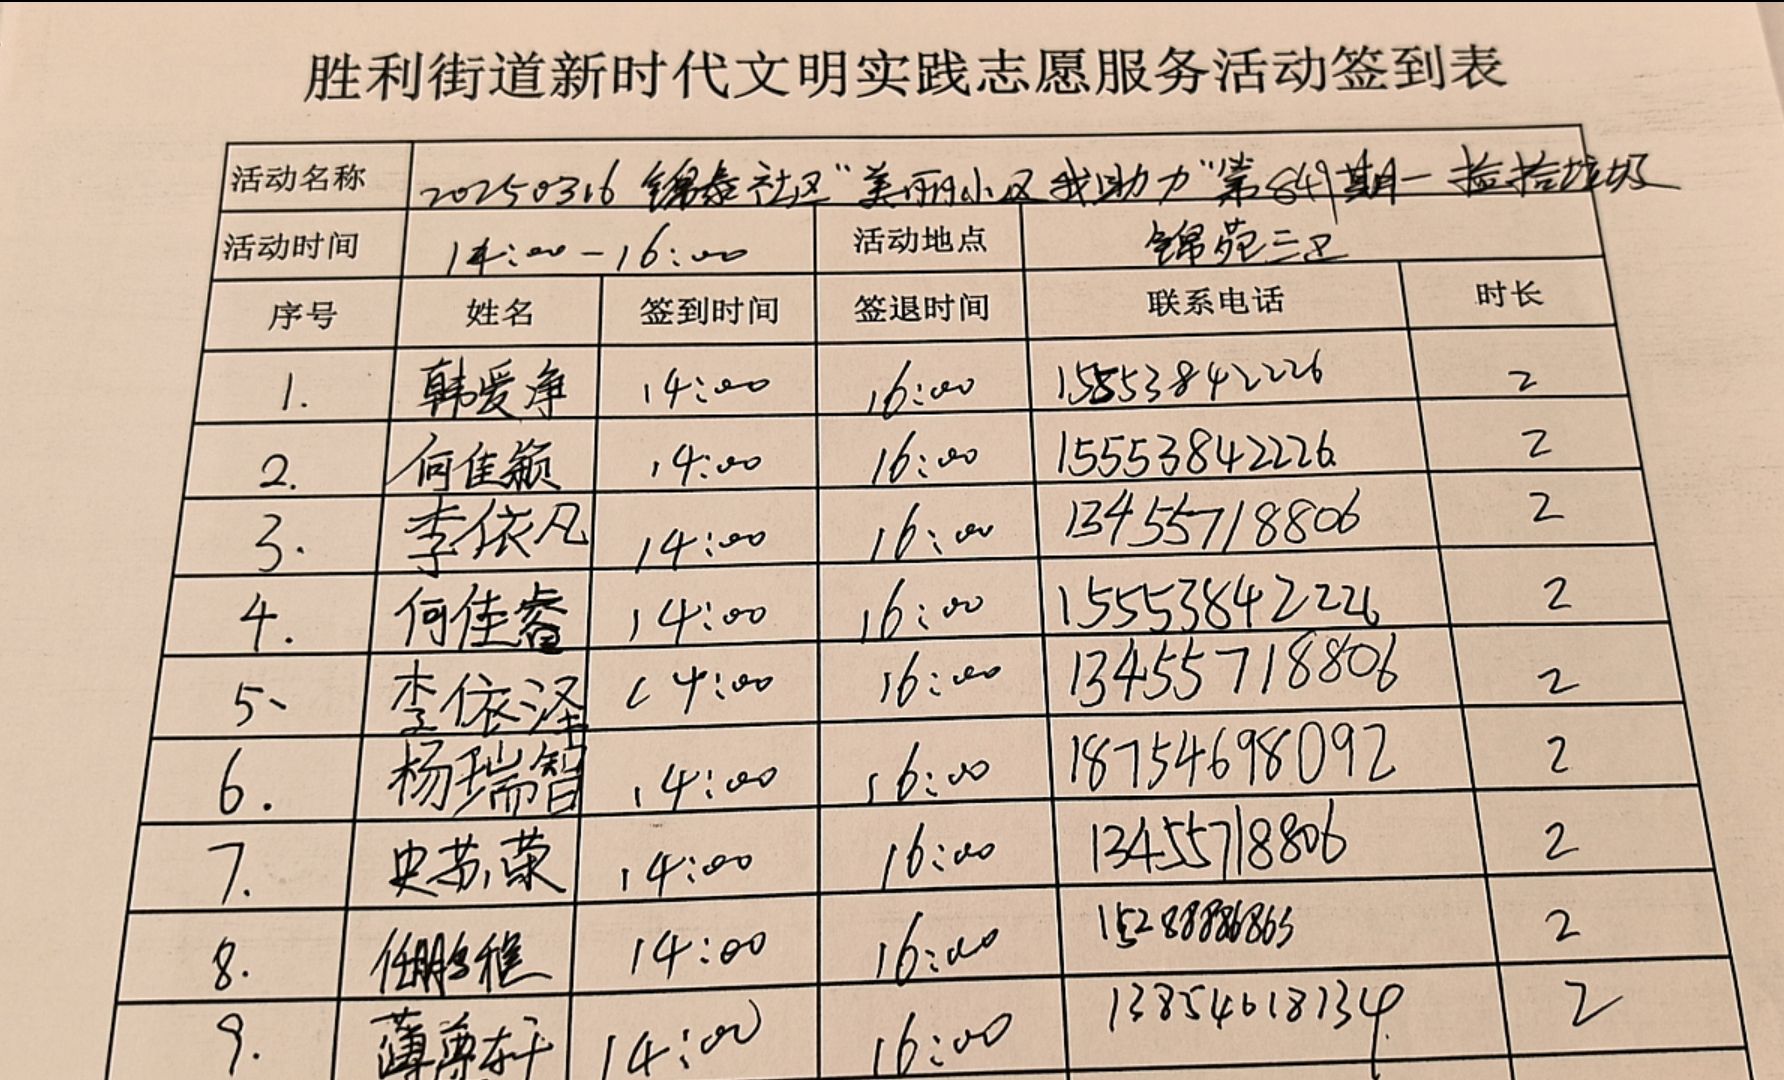 胜利街道新时代文明实践志愿服务活动签到表
活动名称 20250316 锦泰社区"美丽小区 我助力"第849期—捡拾垃圾
活动时间 14:00-16:00 活动地点 锦苑三区
序号 姓名 签到时间 签退时间 联系电话 时长
1. 韩爱净 14:00 16:00 15553842226 2
2. 何佳颖 14:00 16:00 15553842226 2
3. 李依凡 14:00 16:00 13455718806 2
4. 何佳睿 14:00 16:00 15553842226 2
5、 李依泽 14:00 16:00 13455718806 2
6. 杨瑞智 14:00 16:00 18754698092 2
7. 史苏荣 14:00 16:00 13455718806 2
8. 任鹏程 14:00 16:00 2
9. 14:00 16:00 13854618134 2